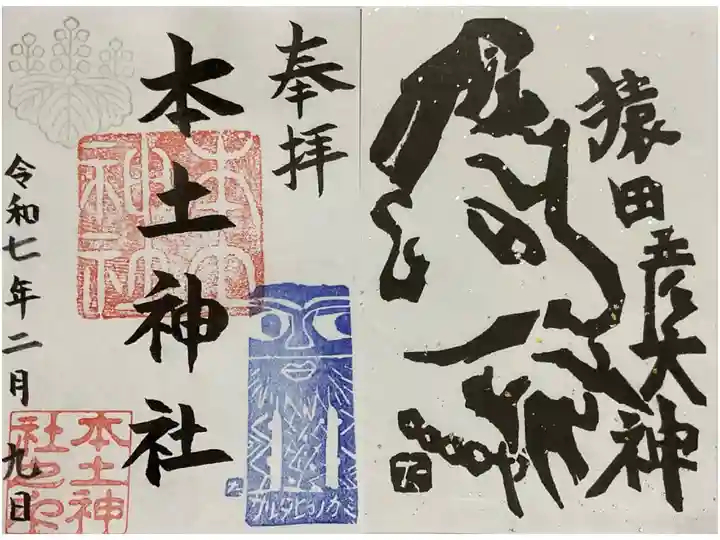 猿田彦大神
奉拝
本土神社
本土神社
令和七年二月九日
サルタヒコノカミ
本土神
社之印